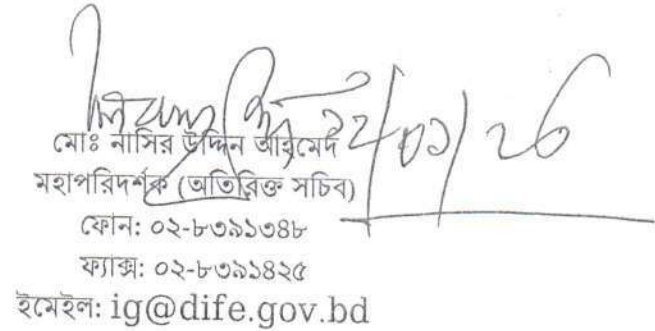 ১২/০১/২৬
মোঃ নাসির উদ্দিন আহমেদ
মহাপরিদর্শক (অতিরিক্ত সচিব)
ফোন: ০২-৮৩৯১৩৪৮
ফ্যাক্স: ০২-৮৩৯১৪২৫
ইমেইল: ig@dife.gov.bd